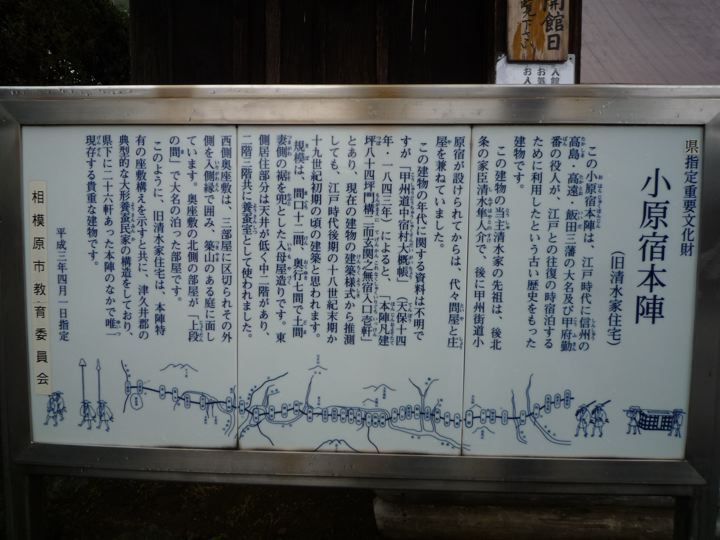 開館日
覧下さい
県指定重要文化財
小原宿本陣
(旧清水家住宅)
この小原宿本陣は、江戸時代に信州の
高島・高遠・飯田三藩の大名及び甲府勤
番の役人が、江戸との往復の時宿泊する
ために利用したという古い歴史をもった
建物です。
この建物の当主清水家の先祖は、後北
条の家臣清水隼人介で、後に甲州街道小
原宿が設けられてからは、代々問屋と庄
屋を兼ねていました。
この建物の年代に関する資料は不明で
すが「甲州道中宿村大概帳」(天保十四
年・一八四三年)によると、「本陣凡建
坪八十四坪門構二而玄関之無宿入口壱軒」
とあり、現在の建物の建築様式から推測
しても、江戸時代後期の十八世紀末期か
十九世紀初期の頃の建築と思われます。
規模は、間口十二間、奥行七間で土間
妻側の裾を兜とした入母屋造りです。東
側居住部分は天井が低く中二階があり、
二階三階共に養蚕室として使われました。
西側奥座敷は、三部屋に区切られその外
側を入側縁で囲み、築山のある庭に面し
ています。奥座敷の北側の部屋が「上段
の間」で大名の泊った部屋です。
このように、旧清水家住宅は、本陣特
有の座敷構えを示すと共に、津久井郡の
典型的な大形養蚕民家の構造をしており、
県下に二十六軒あった本陣のなかで唯一
現存する貴重な建物です。
平成三年四月一日指定
相模原市教育委員会